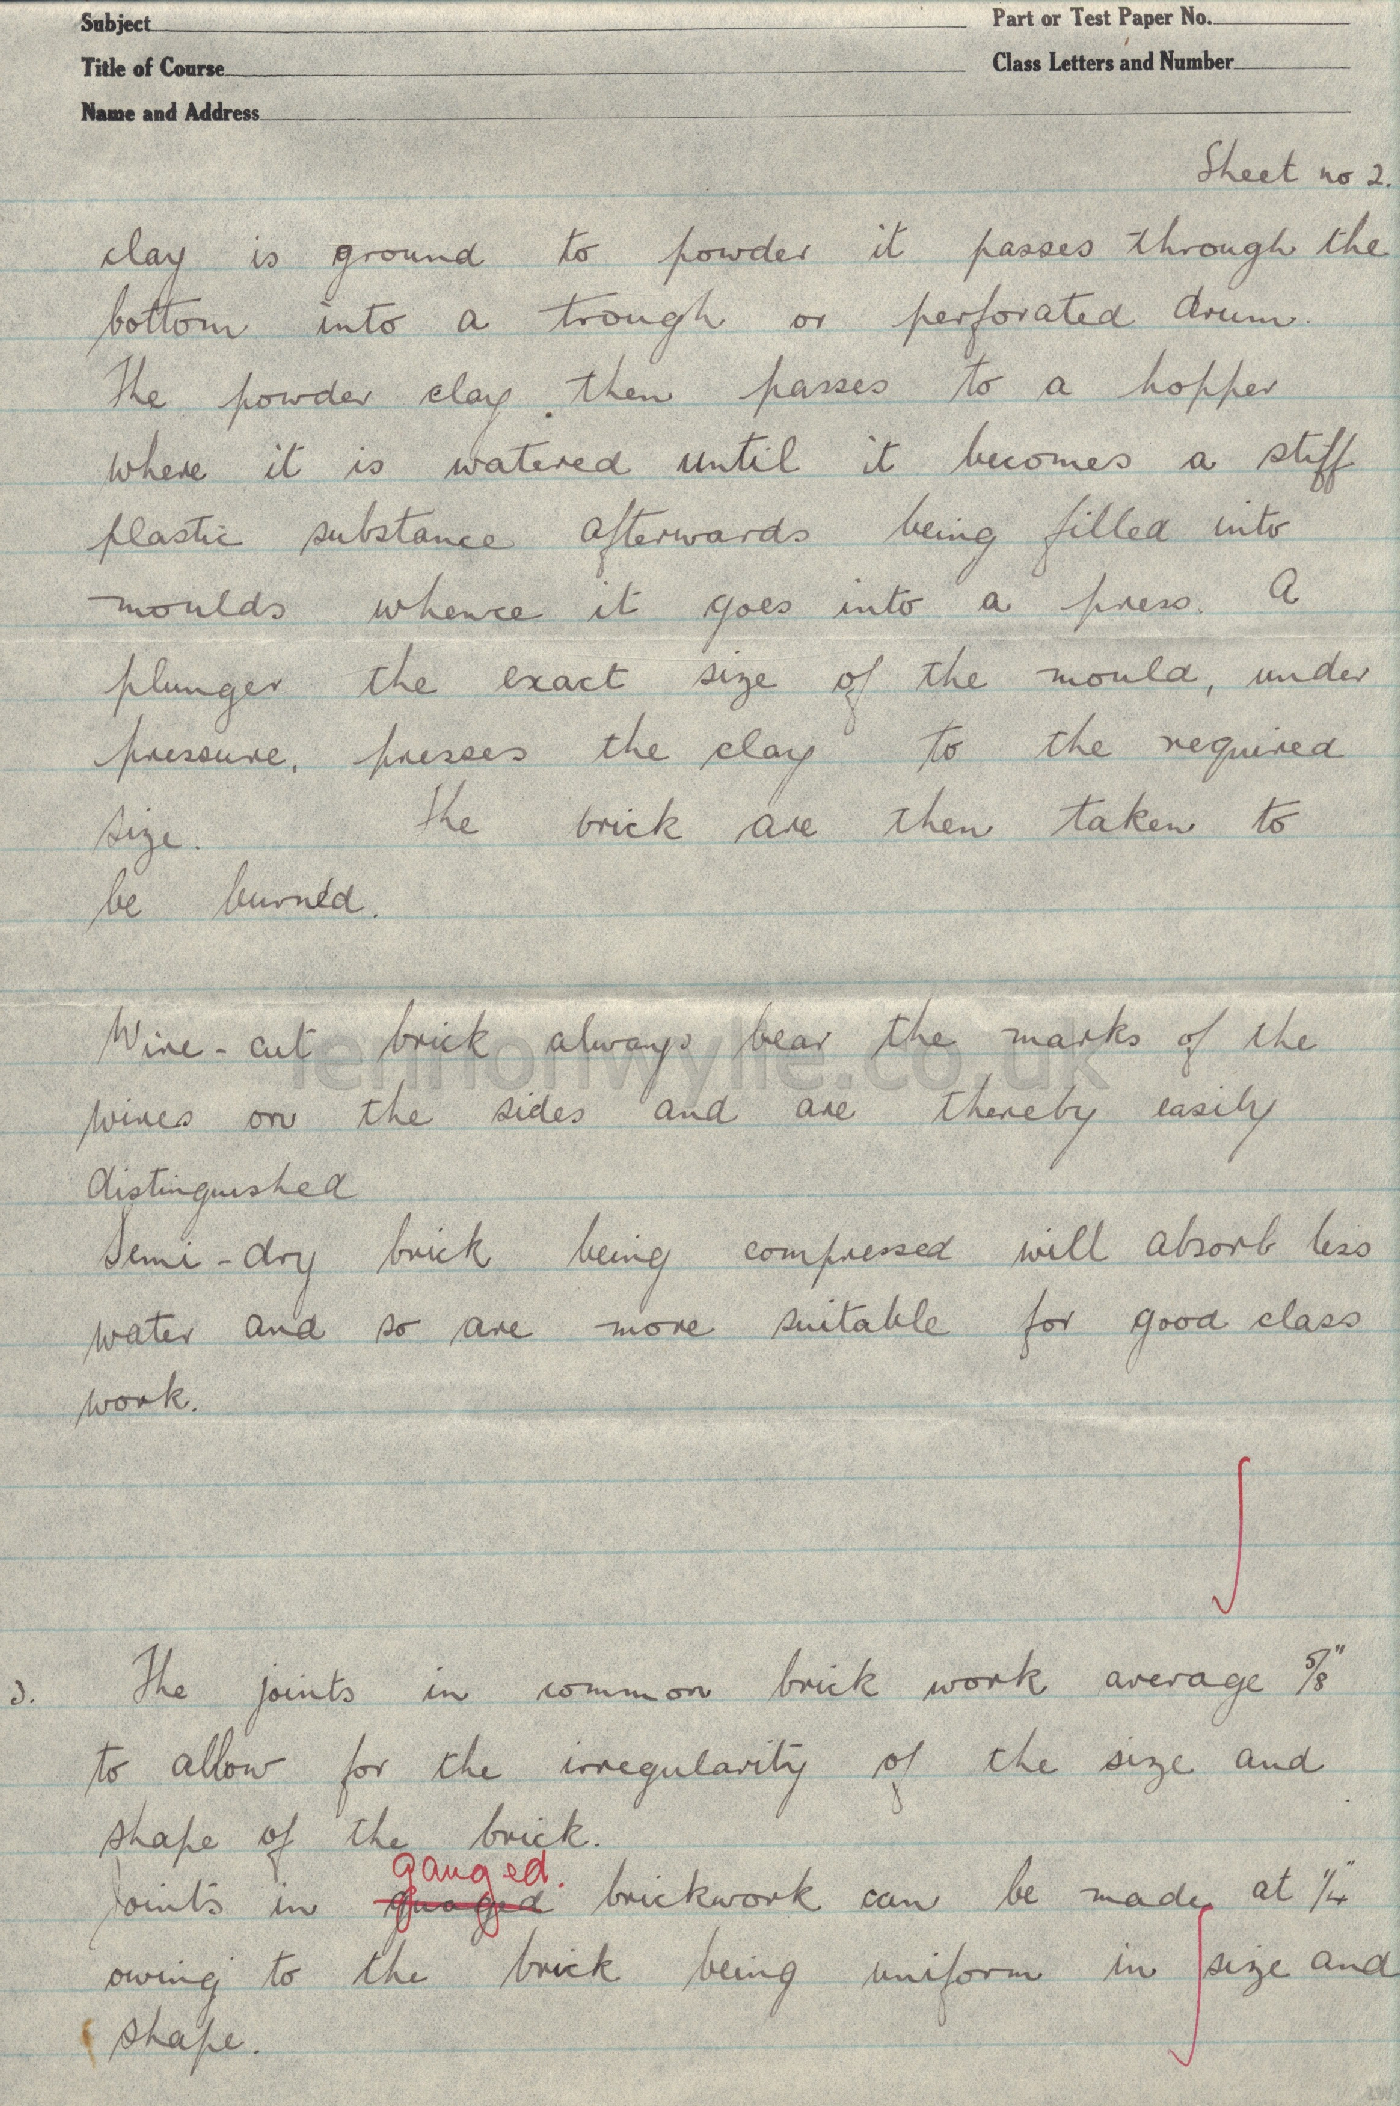 Subject
Part or Test Paper No.
Title of Course
Class Letters and Number
Name and Address
Sheet no 2.
clay is ground to powder it passes through the
bottom into a trough or perforated drum.
The powder clay then passes to a hopper
where it is watered until it becomes a stiff
plastic substance afterwards being filled into
moulds whence it goes into a press. A
plunger the exact size of the mould, under
pressure, presses the clay to the required
size. The brick are then taken to
be burned.
lennonwylie.co.uk
Wire-cut brick always bear the marks of the
wires on the sides and are thereby easily
distinguished
Semi-dry brick being compressed will absorb less
water and so are more suitable for good class
work.
3. The joints in common brick work average 5/8"
to allow for the irregularity of the size and
shape of the brick.
ganged.
Joints in guaged brickwork can be made at 1/4"
owing to the brick being uniform in size and
shape.